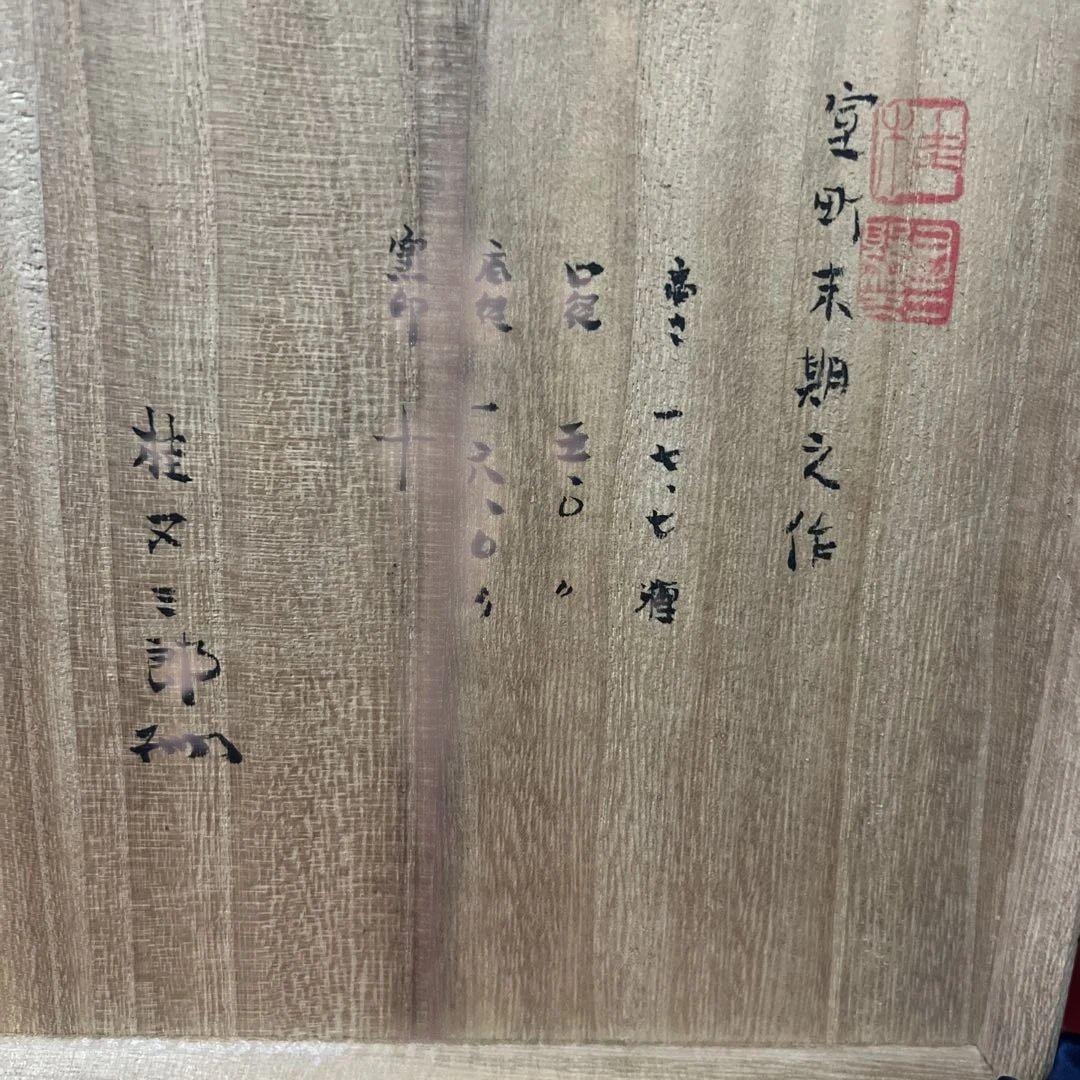 室町末期之作
高さ 一七、七糎
口径 五、〇〃
底径 一六、〇〃
窯印 十
桂又三郎
桂